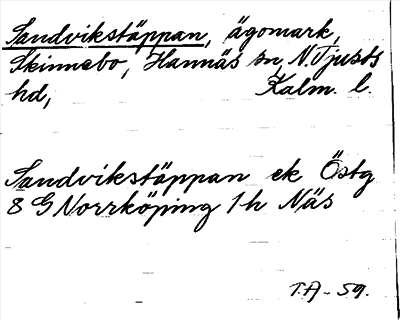 Sandvikstäppan, ägomark,
Skinnebo, Hannäs sn, N. Tjusts
hd, Kalm. l.
Sandvikstäppan ek Östg
8 G Norrköping 1 h Näs
T.A - 59.